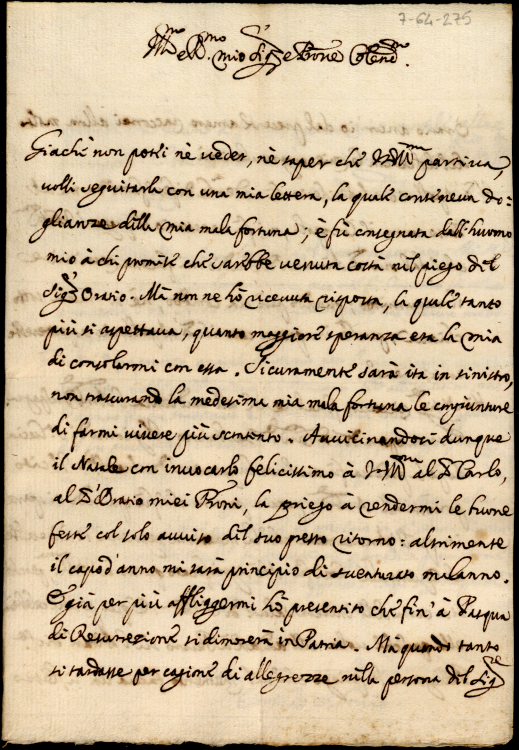 7-64-275
Ill.mo e R.mo mio Sig.re e Pron̄e Colend.mo
Giache non potei nè veder, nè saper che V.S.Ill.ma partiva,
volli seguitarla con una mia lettera, la quale conteneva do-
glianze della mia mala fortuna; è fù consegnata dall'huomo
mio à chi promise che sarebbe venuta costà nel piego del
Sig.re Oratio. Mà non ne hò ricevuta risposta, la quale tanto
più si aspettava, quanto maggiore speranza era la mia
di consolarmi con essa. Sicuramente sarà ita in sinistro,
non trascurando la medesima mia mala fortuna le congiunture
di farmi vivere più scontento. Avvicinandosi dunque
il Natale con invocarlo felicissimo à V.S.Ill.ma al S.r Carlo,
al S.r Oratio miei Proni, la priego à rendermi le buone
feste col solo avviso del suo presto ritorno: altrimente
il capo d'anno mi sarà principio di sventurato malanno.
E già per più affliggermi hò presentito che fin'à Pasqua
di Resurrezione si dimorerà in Patria. Mà quando tanto
si tardasse per cagione di allegrezze nella persona del Sig.re